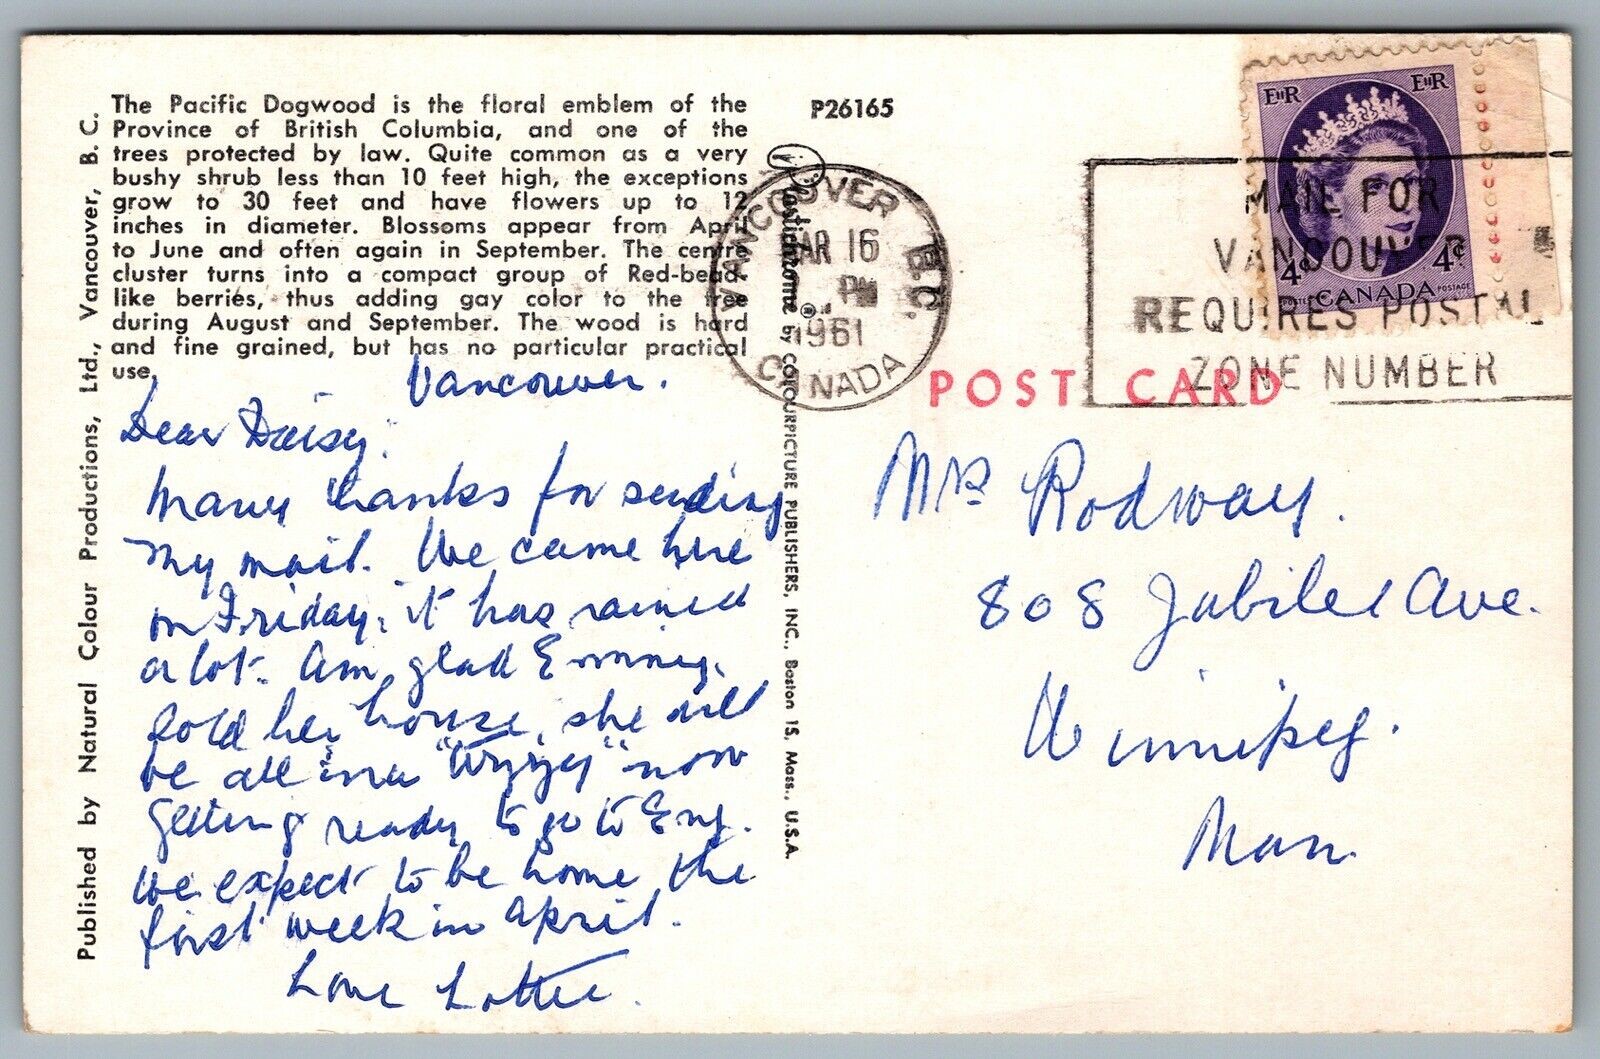 The Pacific Dogwood is the floral emblem of the
Province of British Columbia, and one of the
trees protected by law. Quite common as a very
bushy shrub less than 10 feet high, the exceptions
grow to 30 feet and have flowers up to 12
inches in diameter. Blossoms appear from April
to June and often again in September. The centre
cluster turns into a compact group of Red-bead-
like berries, thus adding gay color to the tree
during August and September. The wood is hard
and fine grained, but has no particular practical
use.
Published by Natural Colour Productions, Ltd., Vancouver, B. C.
Vancouver.
Dear Daisy.
Many thanks for sending
my mail. We came here
on Friday, it has rained
a lot. Am glad Emmy.
sold her house, she will
be all in a "tizzy" now
getting ready to go to Eng.
We expect to be home the
first week in April.
Love Lottie.
P26165
Plastichrome ® by COLOURPICTURE PUBLISHERS, INC., Boston 15, Mass., U.S.A.
VANCOUVER B.C.
AR 16
PM
1961
CANADA
EIIR EIIR
4¢ 4¢
POSTES CANADA POSTAGE
MAIL FOR
VANCOUVER
REQUIRES POSTAL
ZONE NUMBER
POST CARD
Mrs Rodway.
808 Jubilee Ave.
Winnipeg.
Man.